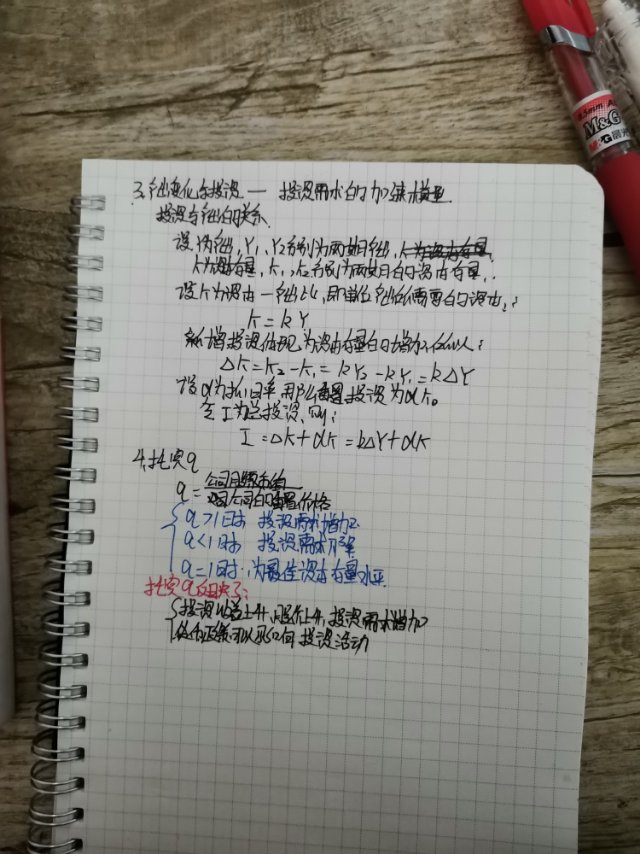 3. 产出变化与投资 — 投资需求的加速模型
投资与产出的关系
设Y为产出, Y₁、Y₂分别为两期产出,
K为资本存量, K₁、K₂分别为两期的资本存量,
设k为资本—产出比, 即单位产出所需要的资本,
K = kY
新增投资体现为资本存量的增加, 所以:
ΔK = K₂ - K₁ = kY₂ - kY₁ = kΔY
设α为折旧率, 那么重置投资为αK。
令I为总投资, 则:
I = ΔK + αK = kΔY + αK
4. 托宾q
q = 公司股票市值
公司的重置价格
q>1时 投资需求增加
q<1时 投资需求下降
q=1时, 为最佳资本存量水平
托宾q
投资收益上升, 股价上升, 投资需求增加
投资活动
M&G
M&G 晨光